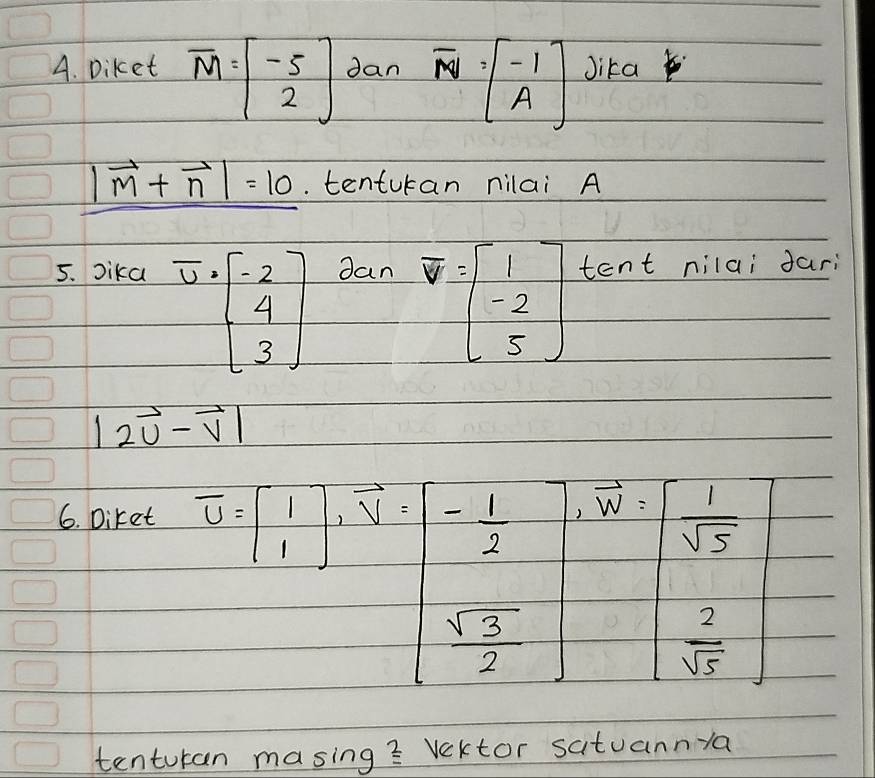 4. Diket M̅ = [-5 2] dan N̅ = [-1 A] Jika
|m⃗ + n⃗| = 10. tentukan nilai A
5. Jika U̅ = [-2 4 3] dan V̅ = [1 -2 5] tent nilai dari
|2U⃗ - V⃗|
6. Diket U̅ = [1 1], V⃗ = [-1/2 √3/2], W⃗ = [1/√5 2/√5]
tentukan masing² vektor satuannya